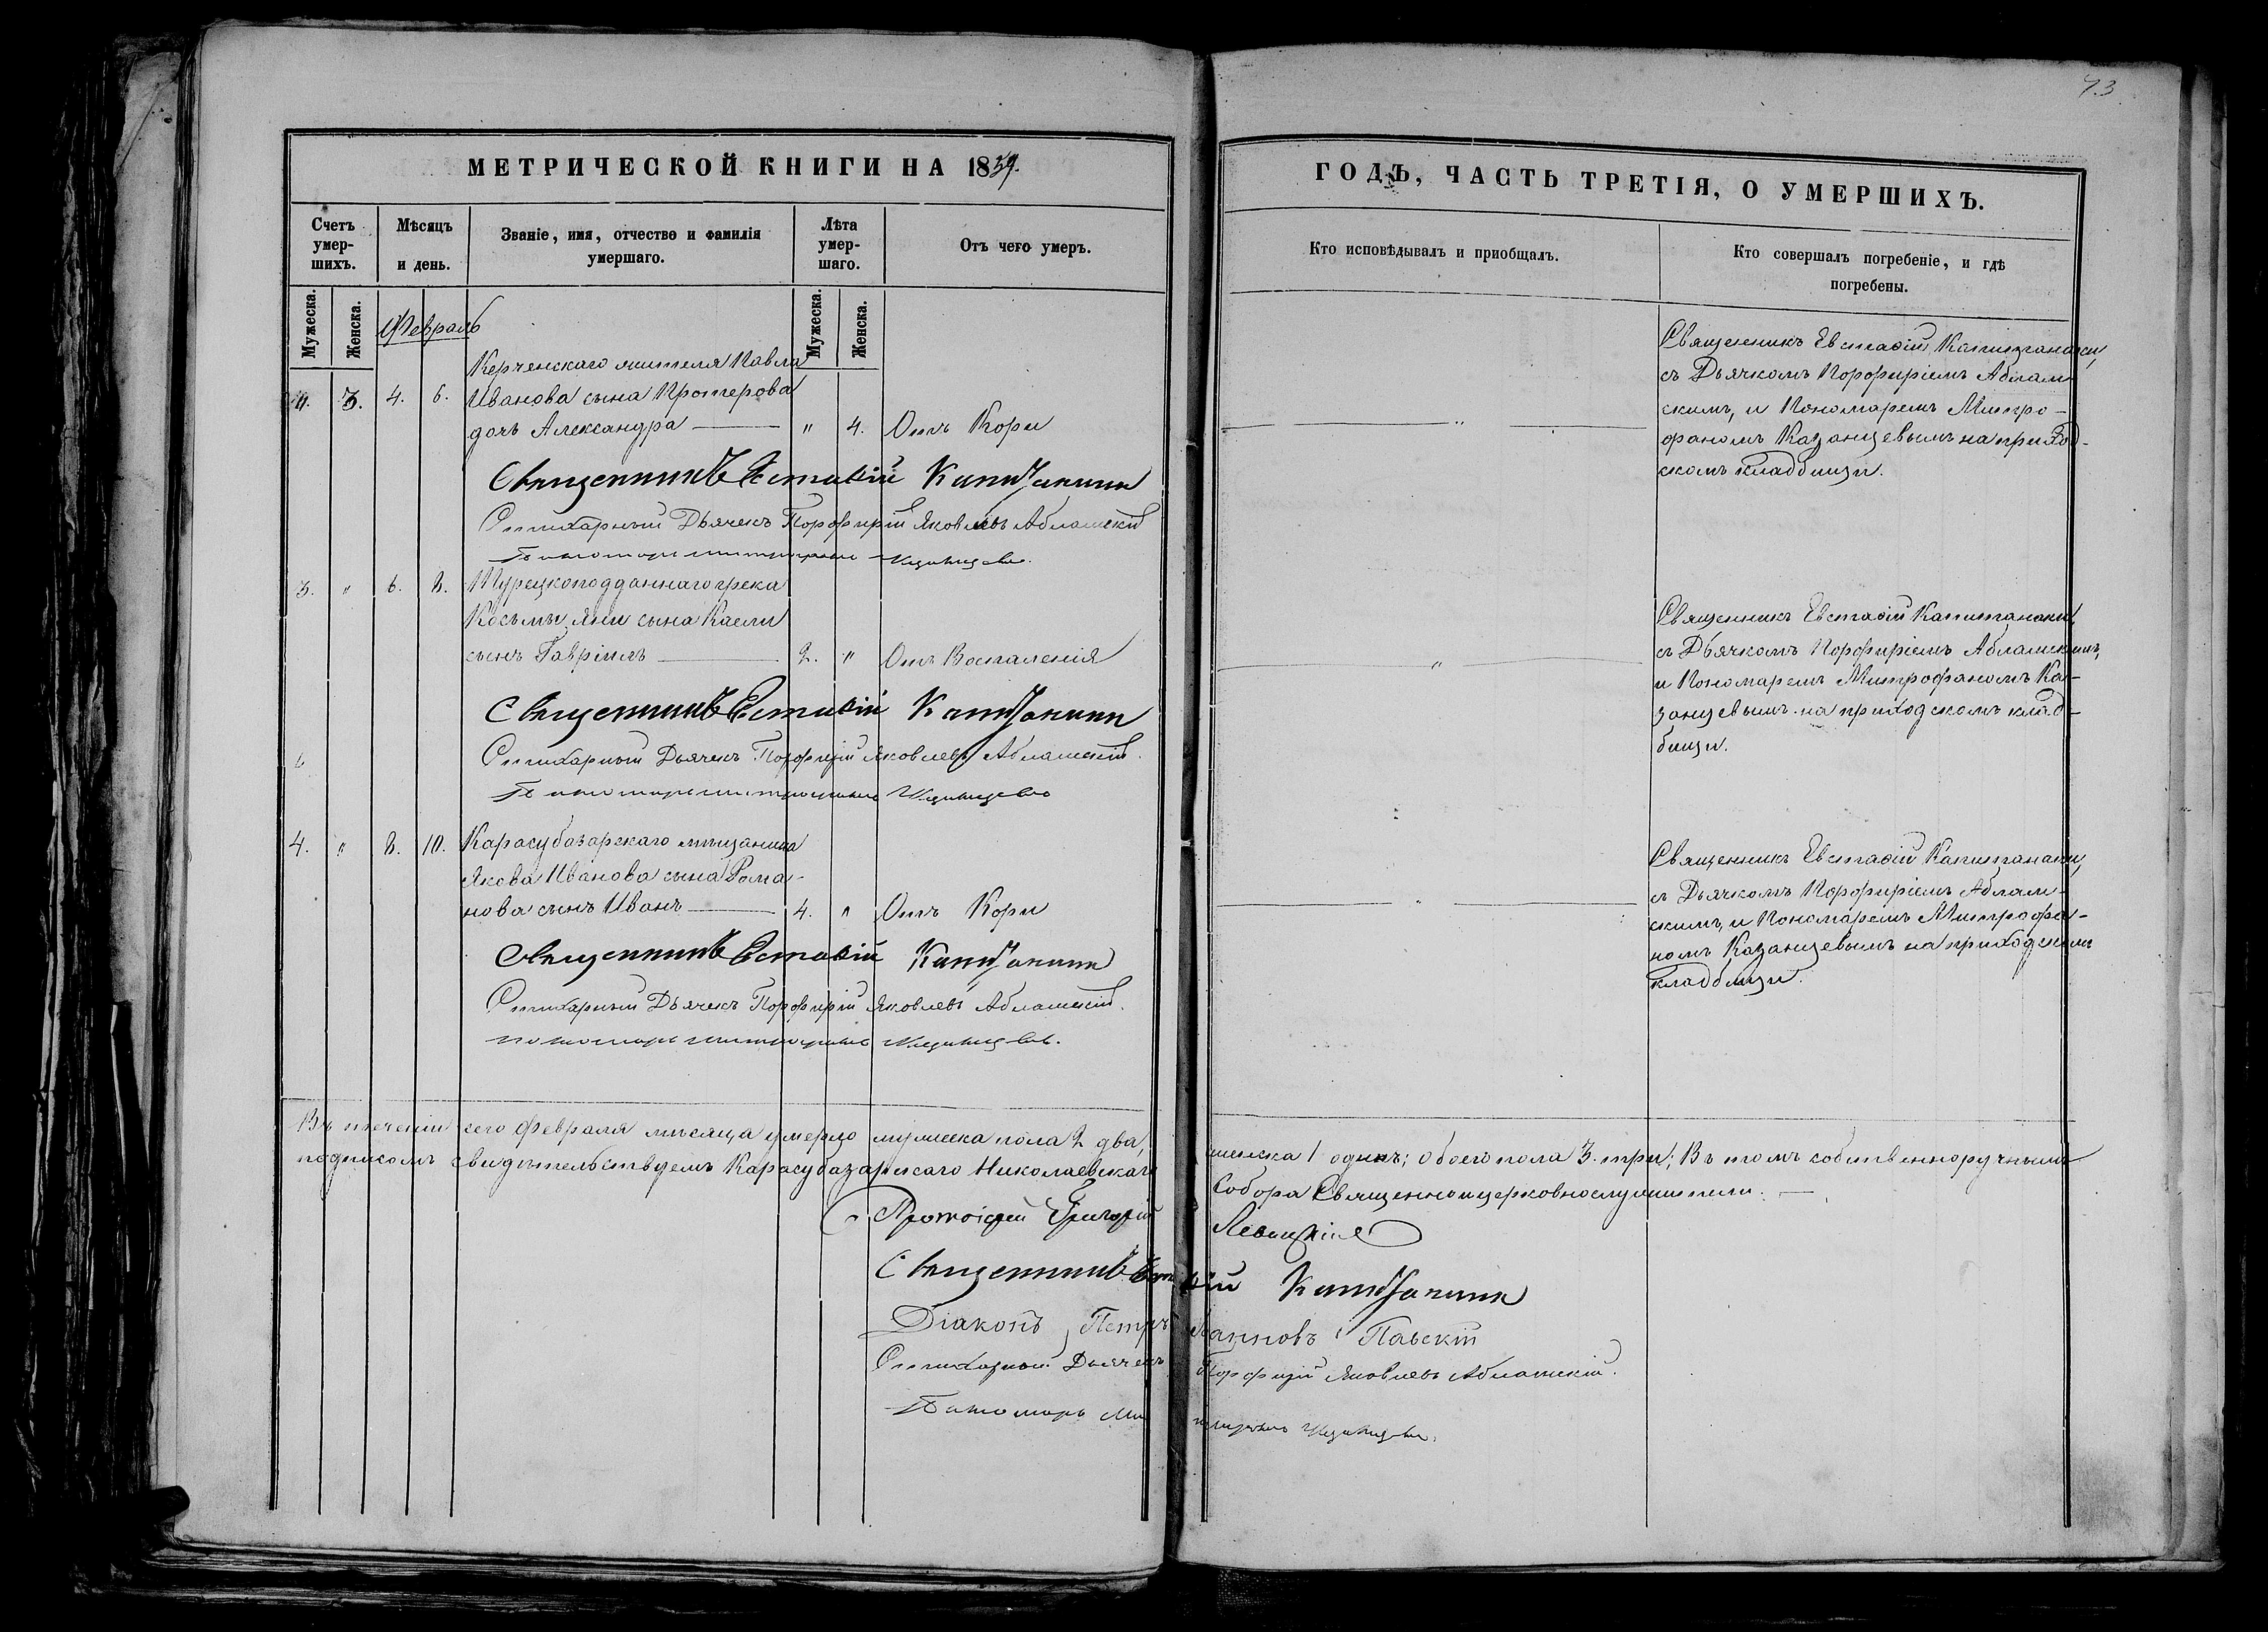 73.
МЕТРИЧЕСКОЙ КНИГИ НА 1859.
ГОДЪ, ЧАСТЬ ТРЕТІЯ, О УМЕРШИХЪ.
Счетъ умер-шихъ.
Мѣсяцъ и день.
Званіе, имя, отчество и фамилія умершаго.
Лѣта умер-шаго.
Отъ чего умеръ.
Кто исповѣдывалъ и приобщалъ.
Кто совершалъ погребеніе, и гдѣ погребены.
Мужеска.
Женска.
Февраль
Мужеска.
Женска.
Керченскаго жителя Павла
3. 4. 6. Иванова сына Протерова
дочь Александра — " 4. Отъ Кори
"
Священникъ Евстафій Капитанаки,
съ Дьячкомъ Порфиріемъ Аблам-
скимъ, и Пономаремъ Митро-
фаномъ Казанцевымъ на приход-
скомъ кладбищи.
Священникъ Евстафій Капитанаки
Стихарный Дьячекъ Порфирій Яковлевъ Абламскій
Пономарь Митрофанъ Казанцевъ.
3. " 6. 8. Турецкоподданнаго грека
Косьмы Яни сына Каели
сынъ Гавріилъ — 2. " Отъ Воспаленія
"
Священникъ Евстафій Капитанаки,
съ Дьячкомъ Порфиріемъ Абламскимъ,
и Пономаремъ Митрофаномъ Ка-
занцевымъ на приходскомъ клад-
бищи.
Священникъ Евстафій Капитанаки
Стихарный Дьячекъ Порфирій Яковлевъ Абламскій.
Пономарь Митрофанъ Казанцевъ
4. " 8. 10. Карасубазарскаго мѣщанина
Якова Иванова сына Рома-
нова сынъ Иванъ — 4. " Отъ Кори
"
Священникъ Евстафій Капитанаки,
съ Дьячкомъ Порфиріемъ Аблам-
скимъ, и Пономаремъ Митрофа-
номъ Казанцевымъ на приходскомъ
кладбищи.
Священникъ Евстафій Капитанаки
Стихарный Дьячекъ Порфирій Яковлевъ Абламскій.
Пономарь Митрофанъ Казанцевъ.
Въ теченіи сего Февраля мѣсяца умерло мужеска пола 2 два, женска 1 одинъ; обоего пола 3. три; Въ томъ собственноручнымъ
подписомъ свидѣтельствуемъ Карасубазарскаго Николаевскаго Собора Священноицерковнослужители. —
Протоіерей Григорій
Священникъ Евстафій Капитанаки
Діаконъ Петръ Паскій
Стихарный Дьячекъ Порфирій Яковлевъ Абламскій.
Пономарь Митрофанъ Казанцевъ.